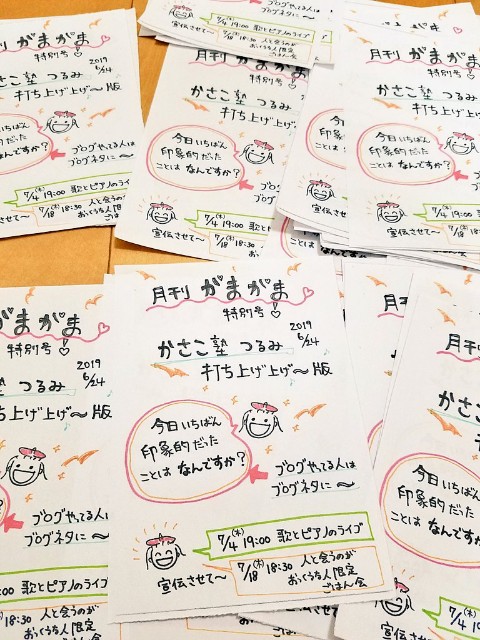 月刊 がまがま
特別号
2019
6/24
かさこ塾 つるみ
打ち上げ上げ〜版
今日いちばん
印象的だった
ことは なんですか?
ブログやってる人は
ブログネタに〜
7/4(木) 19:00 歌とピアノのライブ
宣伝させて〜
7/18(木) 18:30 人と会うのが
おっくうな人限定
ごはん会